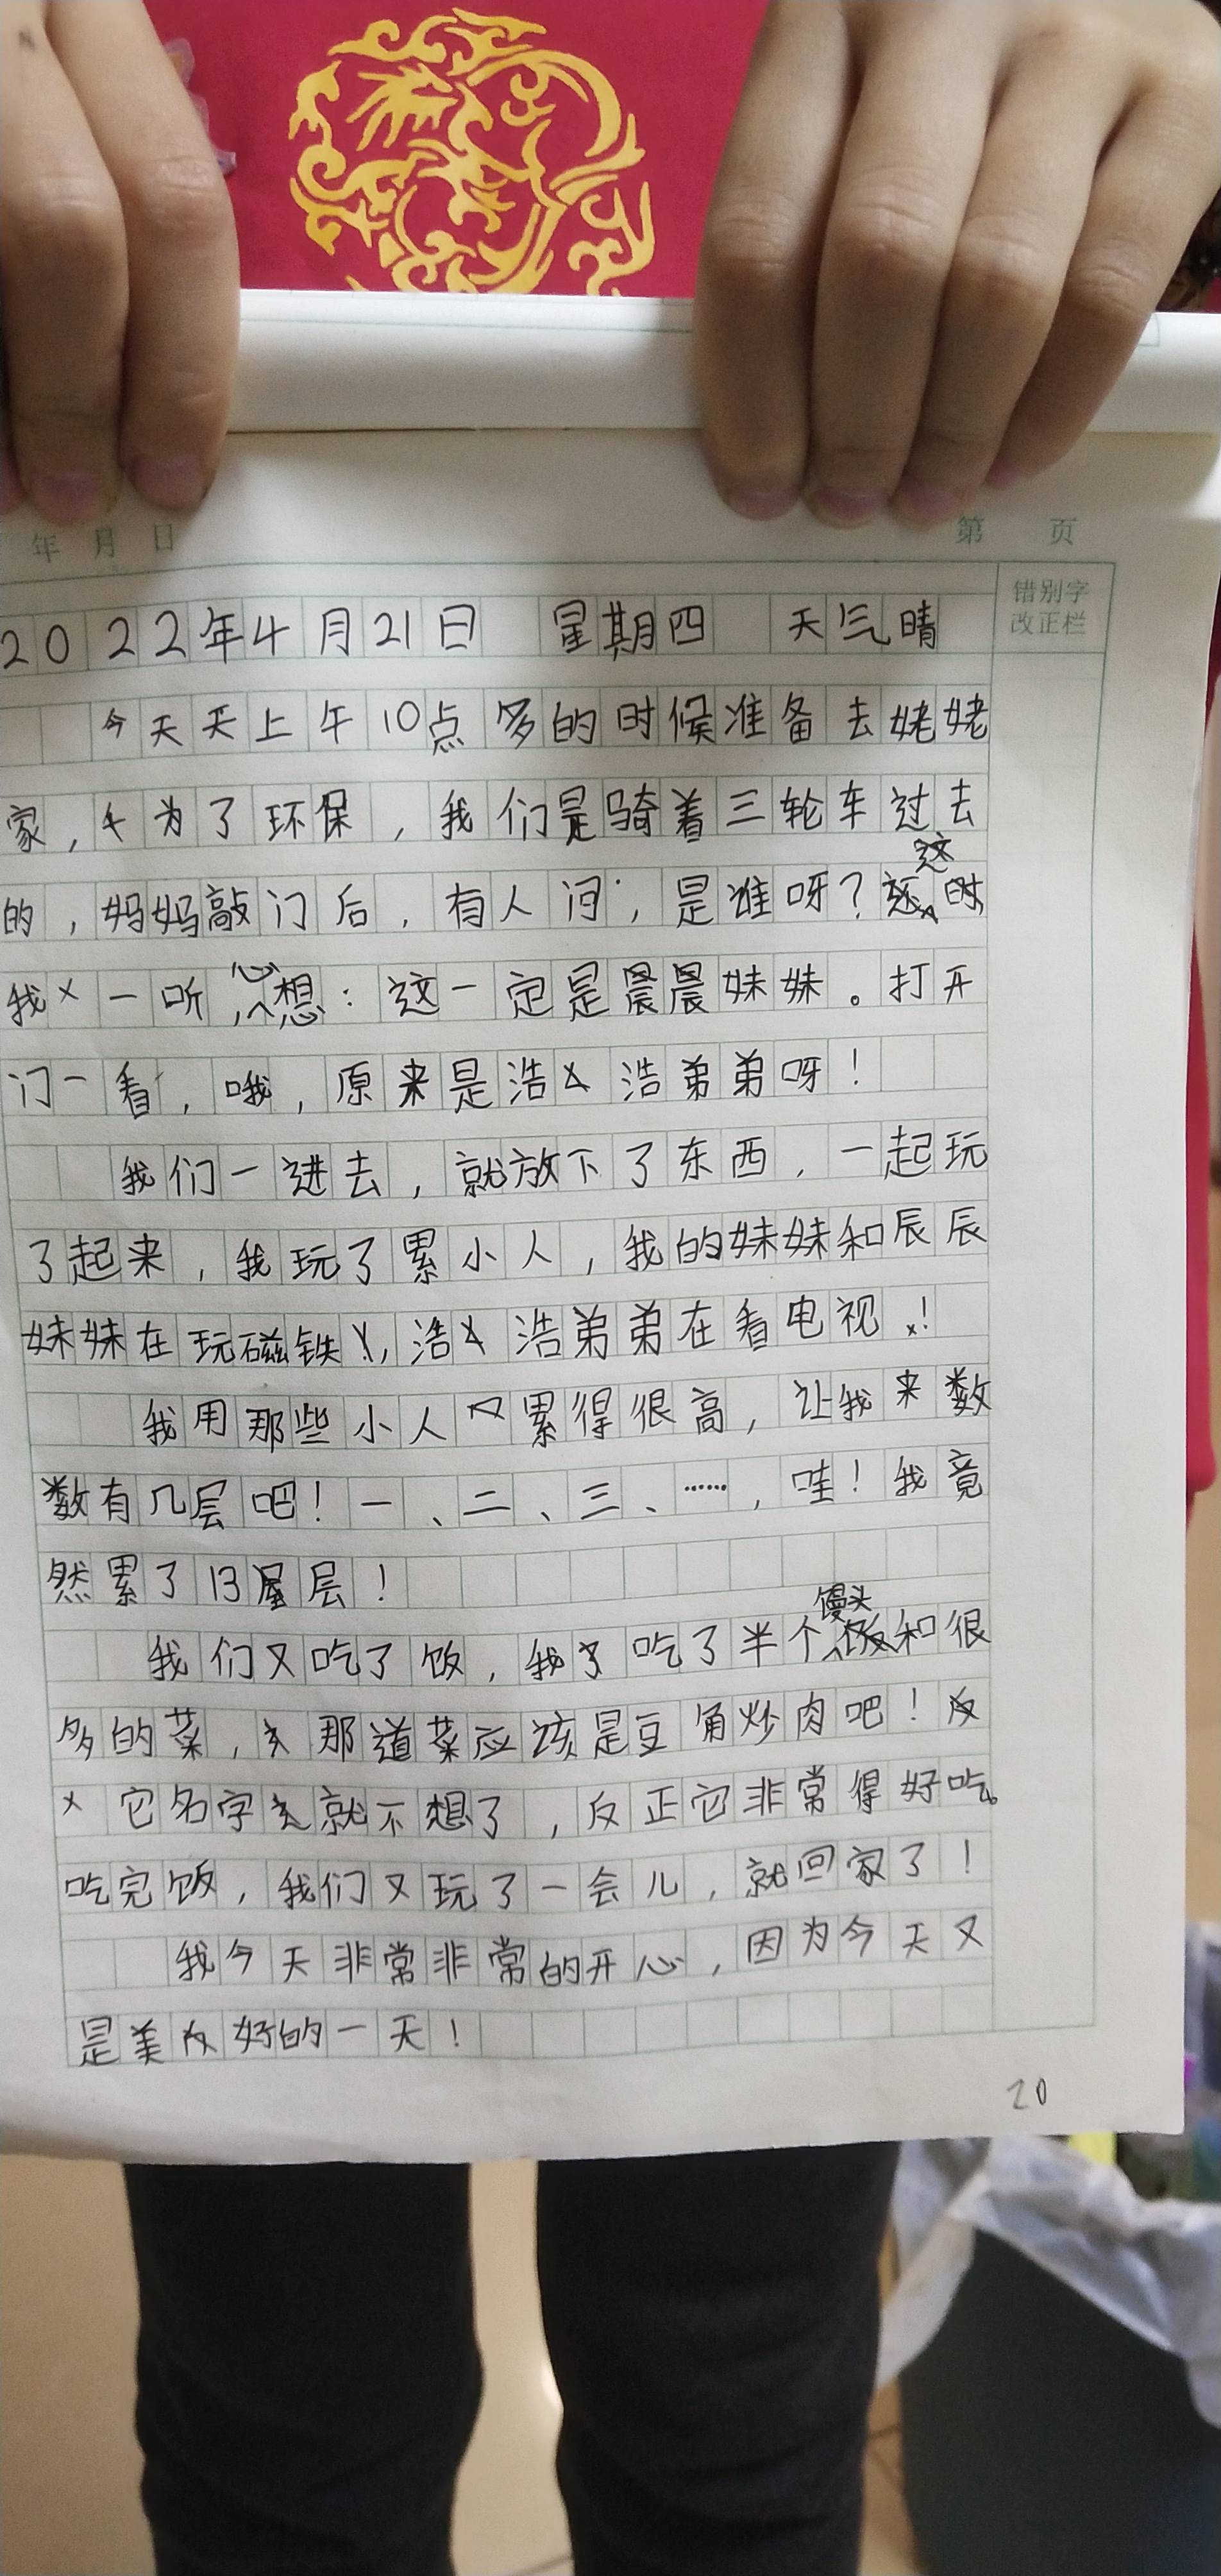 年 月 日
第 页
错别字
改正栏
2022年4月21日 星期四 天气晴
今天天上午10点多的时候准备去姥姥
家,为了环保,我们是骑着三轮车过去
的,妈妈敲门后,有人问:是谁呀?这时
我一听,心想:这一定是晨晨妹妹。打开
门一看,哦,原来是浩浩弟弟呀!
我们一进去,就放下了东西,一起玩
了起来,我玩了累小人,我的妹妹和辰辰
妹妹在玩磁铁,浩浩弟弟在看电视!
我用那些小人累得很高,让我来数
数有几层吧!一、二、三、……,哇!我竟
然累了13层!
我们又吃了饭,我吃了半个馒头和很
多的菜,那道菜应该是豆角炒肉吧!
它名字就不想了,反正它非常得好吃。
吃完饭,我们又玩了一会儿,就回家了!
我今天非常非常的开心,因为今天又
是美好的一天!
20